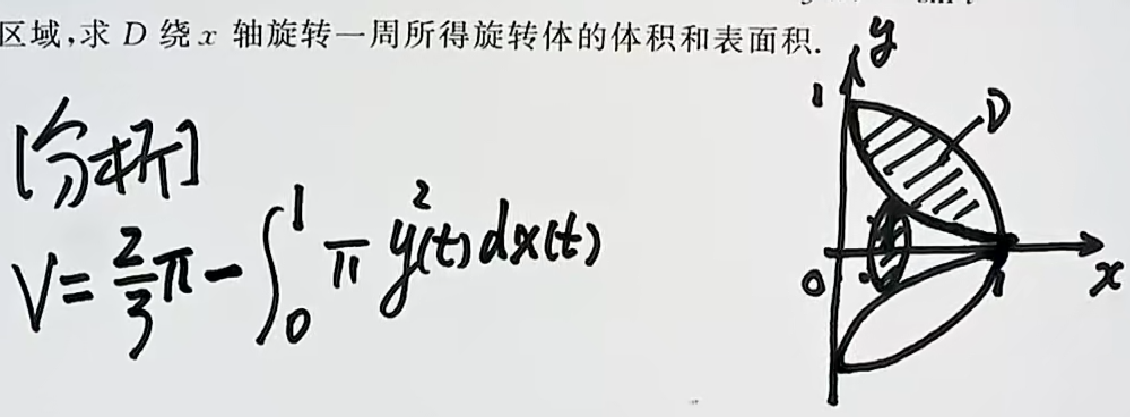 区域,求 D 绕 x 轴旋转一周所得旋转体的体积和表面积.
y
1
D
[分析]
V = \frac{2}{3}π - \int_0^1 π y^2(t) dx(t)
0
1
x